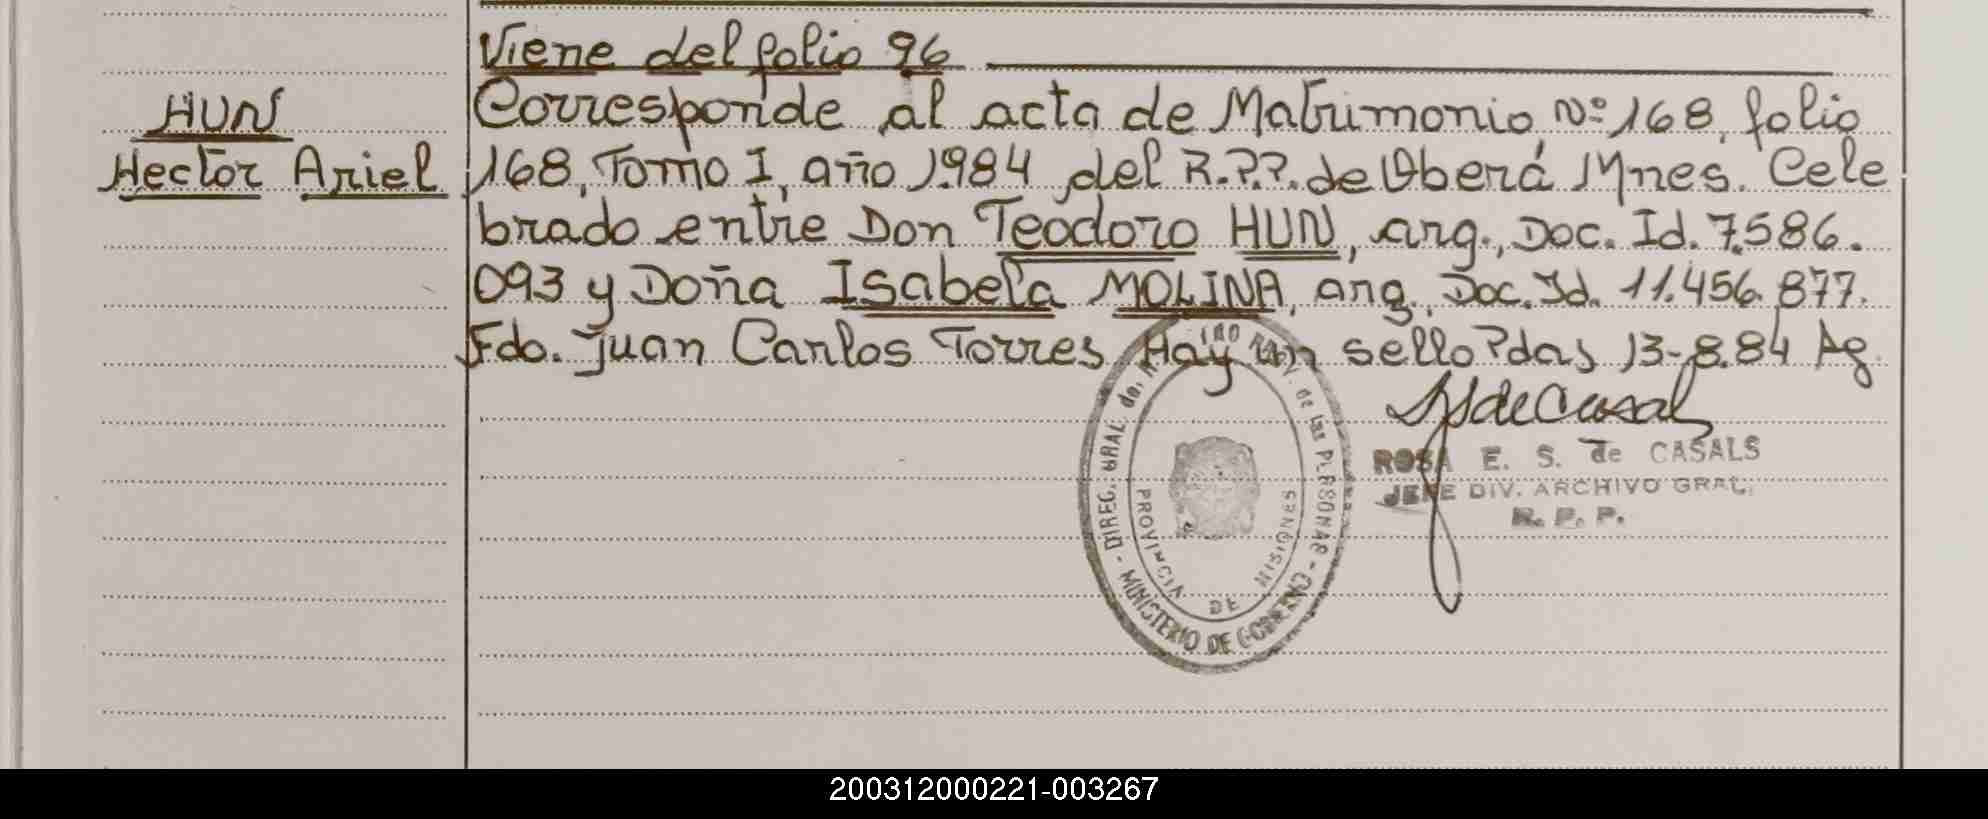 Viene del folio 96
HUN
Hector Ariel
Corresponde al acta de Matrimonio Nº 168, folio
168, Tomo I, año 1984 del R.P.P. de Oberá Mnes. Cele
brado entre Don Teodoro HUN, arg., Doc. Id. 7.586.
093 y Doña Isabela MOLINA, arg., Doc. Id. 11.456.877.
Fdo. Juan Carlos Torres Hay un sello Pdas 13-8.84 Ag.
ROSA E. S. de CASALS
JEFE DIV. ARCHIVO GRAL.
R. P. P.
DIREC. GRAL. de las PERSONAS - MINISTERIO DE GOBIERNO -
PROVINCIA DE MISIONES
200312000221-003267